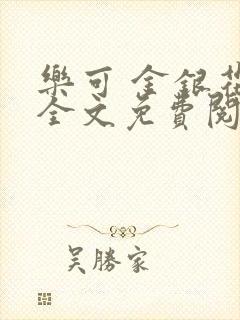 樂可 金銀花
全文免費閱
吳勝家